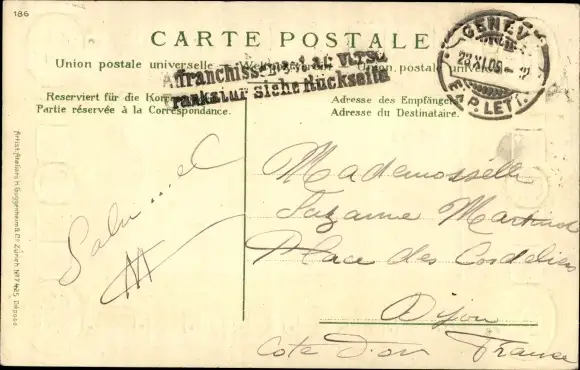 186
CARTE POSTALE
Union postale universelle Weltpostverein Union postale universelle
Affranchissement au verso
Frankatur siehe Rückseite
Reserviert für die Korrespondenz
Partie réservée à la Correspondance.
Adresse des Empfängers
Adresse du Destinataire.
GENÈVE
23 XI 06
EXP. LETT.
Mademoselle
Suzanne
Place des Cordeliers
Dijon
Cote D'or France
Artist. Ateliers H. Guggenheim & Co Zürich No 7425 Déposé